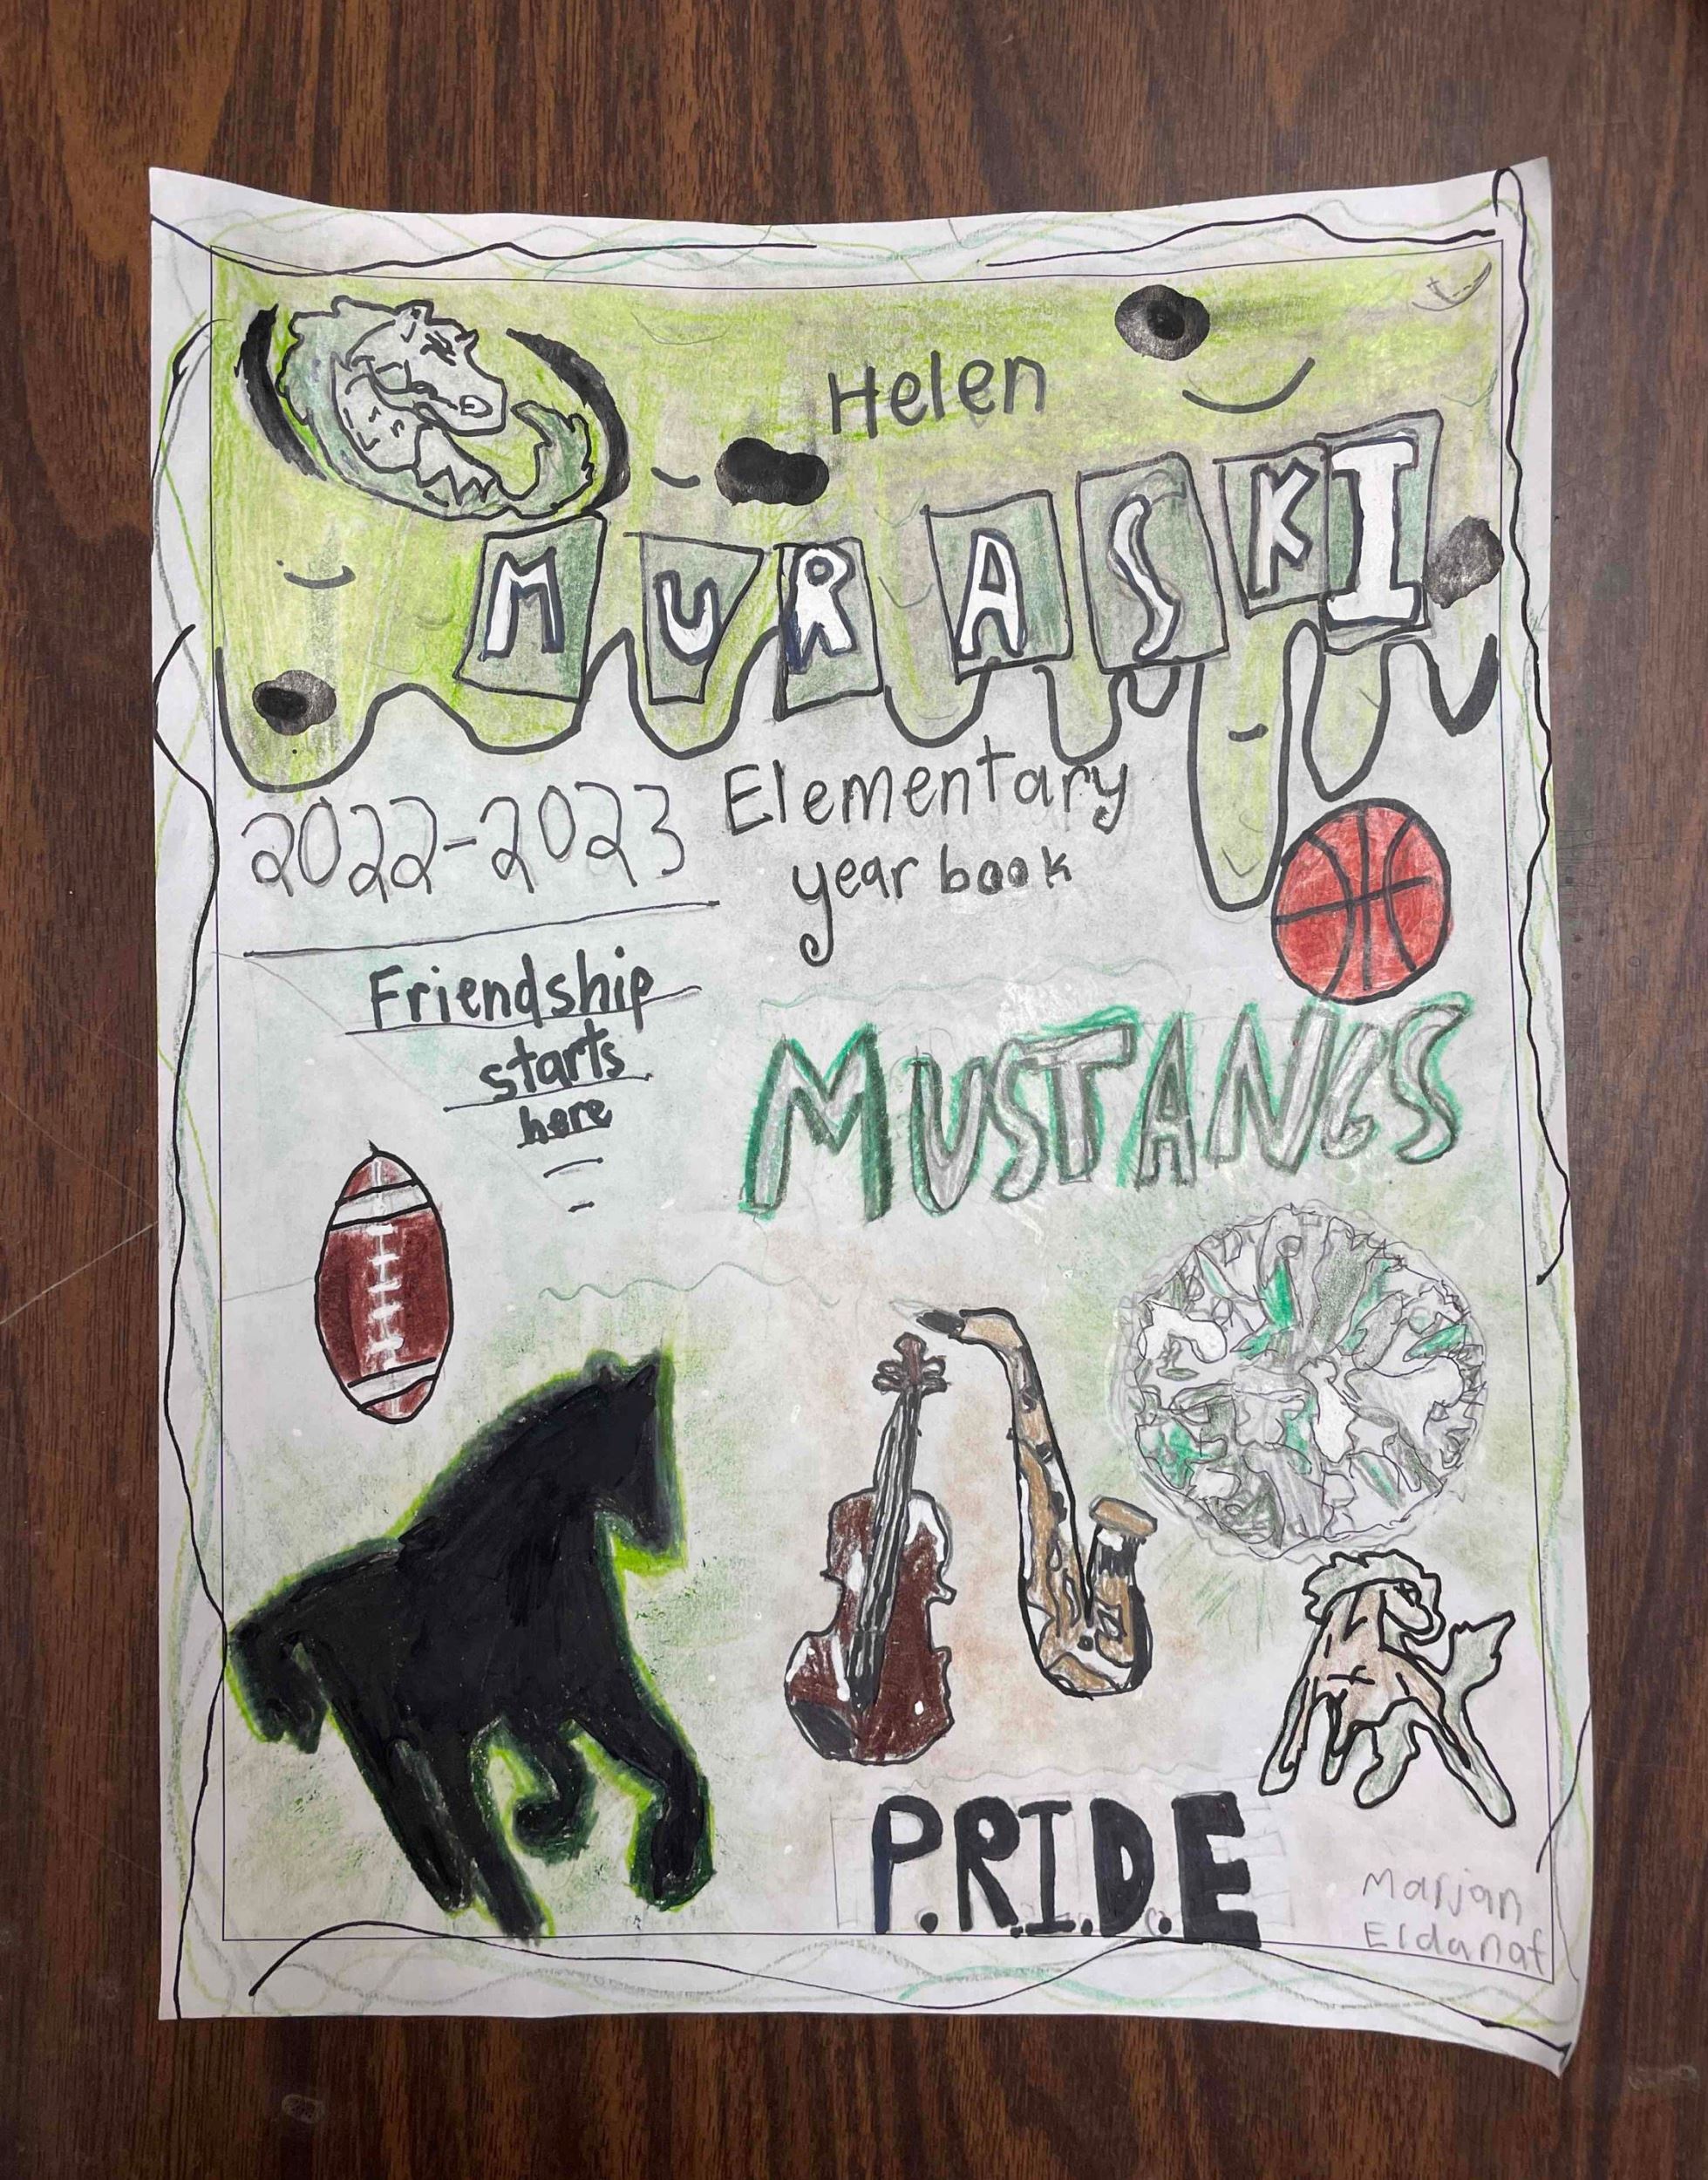 Helen
MURASKI
Elementary
year book
2022-2023
Friendship
starts
here
MUSTANGS
P.R.I.D.E
Marjan
Eldanaf